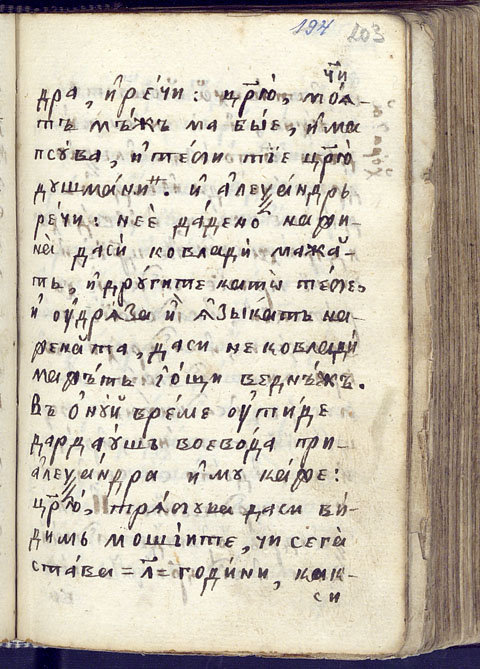 194 203
чи
дра, и҆ речи: цр҃ю, моѧ-
тъ мѫжъ ма быѐ, и҆ ма
псꙋва, и҆ тебѣ тїе цр҃ю
дꙋшмани. и҆ алеѯандръ
речи: неѐ дадено на жи-
на даси ковлади мажа-
тъ, и҆ дрꙋгите като тебе,
и҆ ѹ҆дрѧза и҆ ѧ҆зыкатъ на-
жената, даси не ковлади
мажътъ ї ѻ҆щи веднѫжъ.
Въ ѻ҆нꙋй време ѹ҆тиде
дардаꙋшъ воевода при
алеѯандра и҆ мꙋ каже:
цр҃ю, трѧбꙋва даси ви-
димъ мощїите, чи сега
става = л҃ = години, как-
си